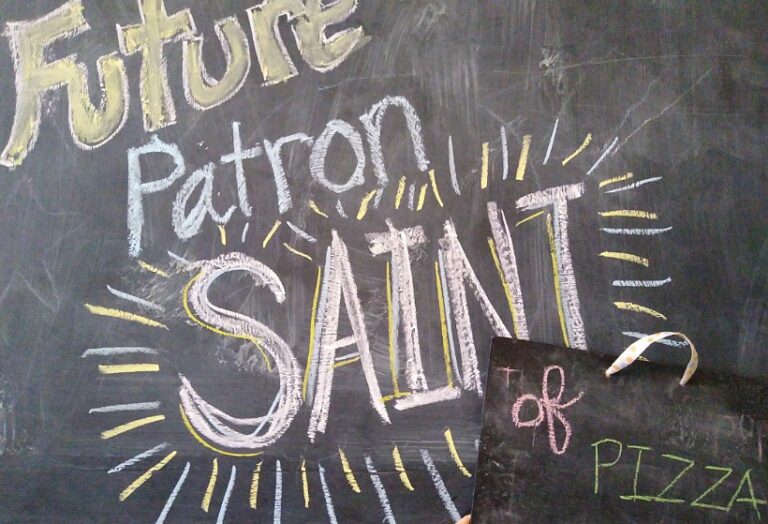 Future
Patron
SAINT
of
PIZZA